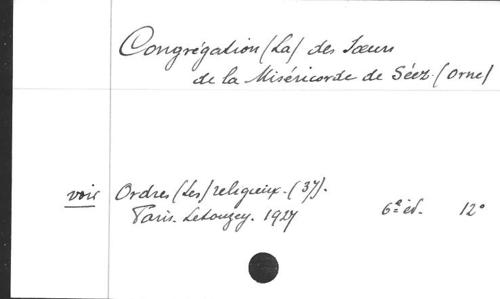 Congrégation (La) des Sœurs
de la Miséricorde de Séez. (Orne)
voir Ordres (Les) religieux. (37).
Paris. Letouzey. 1927 6e éd. 12°